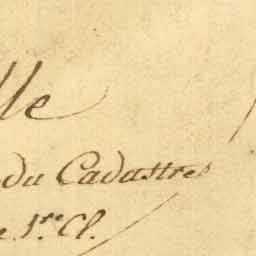 lle
du Cadastre
e 1.re Cl.